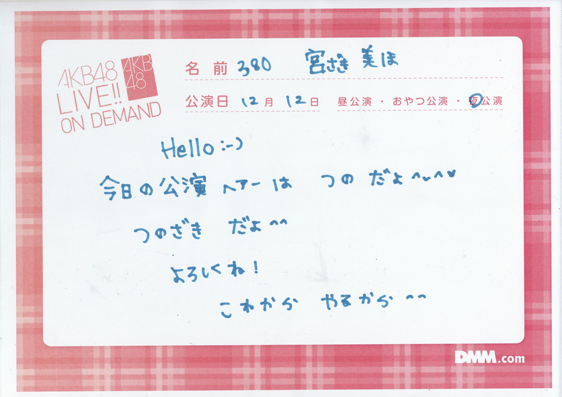 AKB48
LIVE!!
ON DEMAND
AKB
48
名前 380 宮ざき 美ほ
公演日 12月12日 昼公演・おやつ公演・夜公演
Hello :-)
今日の公演 ヘアーは つの だよ^~^♥
つのざき だよ^^
よろしくね!
これから やるから ^^
DMM.com